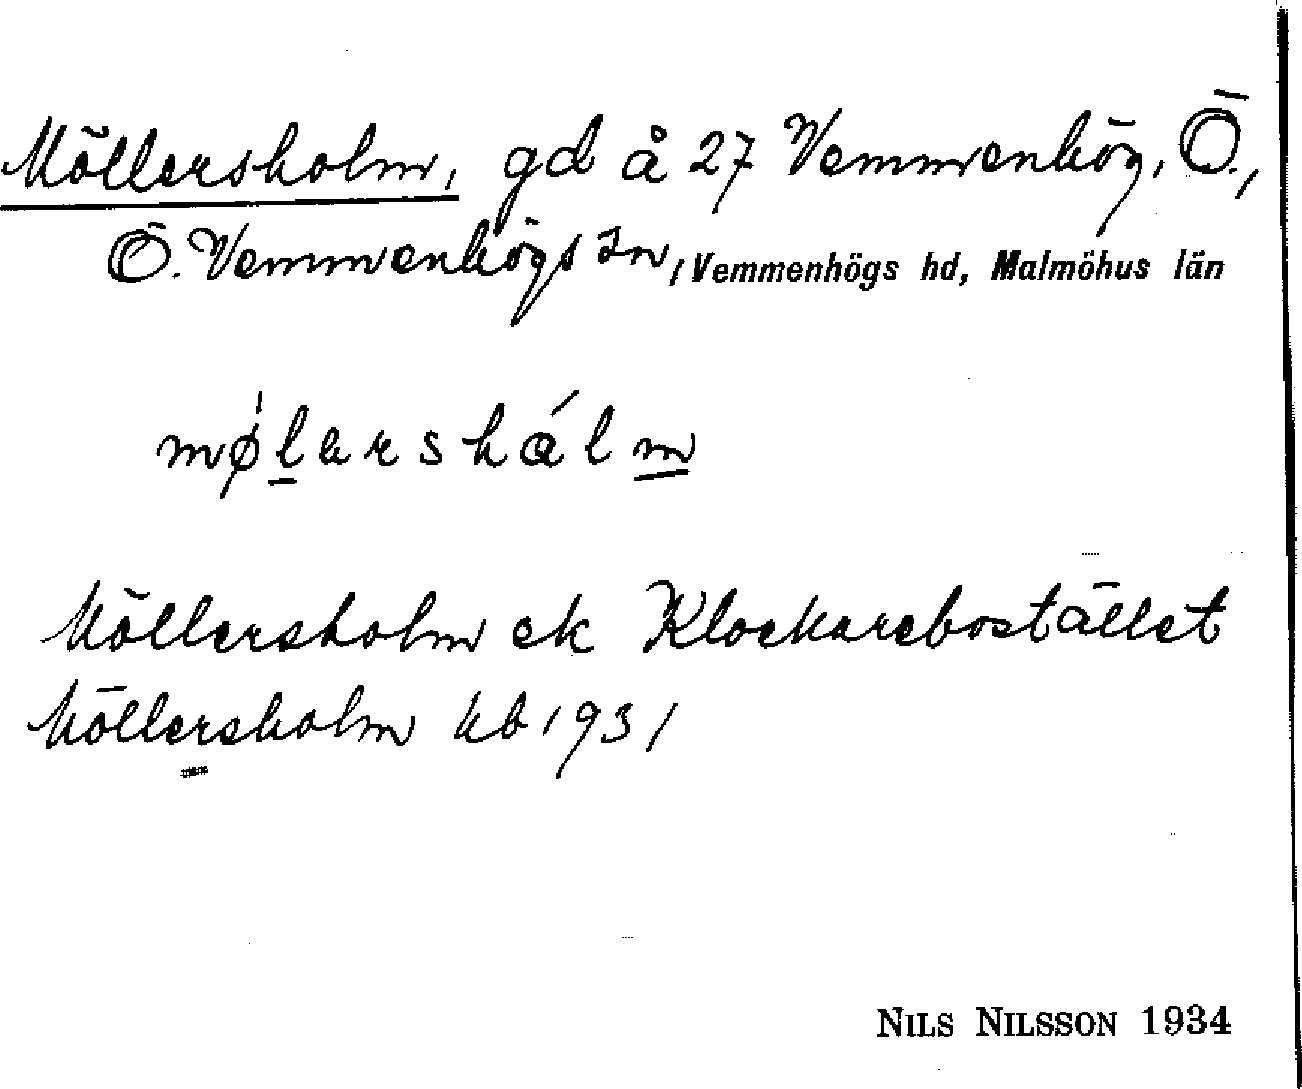 Möllersholm, gd å 27 Vemmenhög, Ö.,
Ö. Vemmenhögs sn, Vemmenhögs hd, Malmöhus län
mø̍l̲arshálm̲
Möllersholm ek Klockarebostället
Möllersholm kb 1931
NILS NILSSON 1934